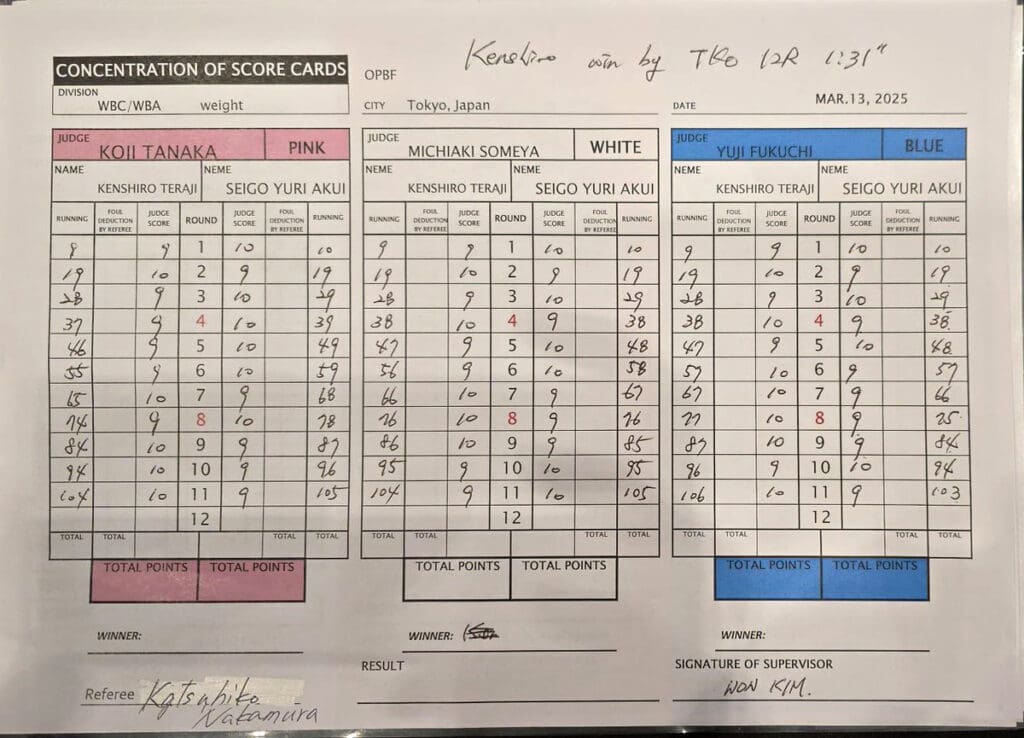 Kenshiro win by TKO 12R 1:31"
CONCENTRATION OF SCORE CARDS OPBF
DIVISION
WBC/WBA weight CITY Tokyo, Japan DATE MAR.13, 2025
JUDGE KOJI TANAKA PINK JUDGE MICHIAKI SOMEYA WHITE JUDGE YUJI FUKUCHI BLUE
NAME NEME NEME NEME NEME NEME
KENSHIRO TERAJI SEIGO YURI AKUI KENSHIRO TERAJI SEIGO YURI AKUI KENSHIRO TERAJI SEIGO YURI AKUI
RUNNING FOUL DEDUCTION BY REFEREE JUDGE SCORE ROUND JUDGE SCORE FOUL DEDUCTION BY REFEREE RUNNING RUNNING FOUL DEDUCTION BY REFEREE JUDGE SCORE ROUND JUDGE SCORE FOUL DEDUCTION BY REFEREE RUNNING RUNNING FOUL DEDUCTION BY REFEREE JUDGE SCORE ROUND JUDGE SCORE FOUL DEDUCTION BY REFEREE RUNNING
9 9 1 10 10 9 9 1 10 10 9 9 1 10 10
19 10 2 9 19 19 10 2 9 19 19 10 2 9 19
28 9 3 10 29 28 9 3 10 29 28 9 3 10 29
37 9 4 10 39 38 10 4 9 38 38 10 4 9 38
46 9 5 10 49 47 9 5 10 48 47 9 5 10 48
55 9 6 10 59 56 9 6 10 58 57 10 6 9 57
65 10 7 9 68 66 10 7 9 67 67 10 7 9 66
74 9 8 10 78 76 10 8 9 76 77 10 8 9 75
84 10 9 9 87 86 10 9 9 85 87 10 9 9 84
94 10 10 9 96 95 9 10 10 95 96 9 10 10 94
104 10 11 9 105 104 9 11 10 105 106 10 11 9 103
12 12 12
TOTAL TOTAL TOTAL TOTAL TOTAL TOTAL TOTAL TOTAL TOTAL TOTAL TOTAL TOTAL
TOTAL POINTS TOTAL POINTS TOTAL POINTS TOTAL POINTS TOTAL POINTS TOTAL POINTS
WINNER: WINNER: WINNER:
RESULT SIGNATURE OF SUPERVISOR
WON KIM.
Referee Katsuhiko
Nakamura